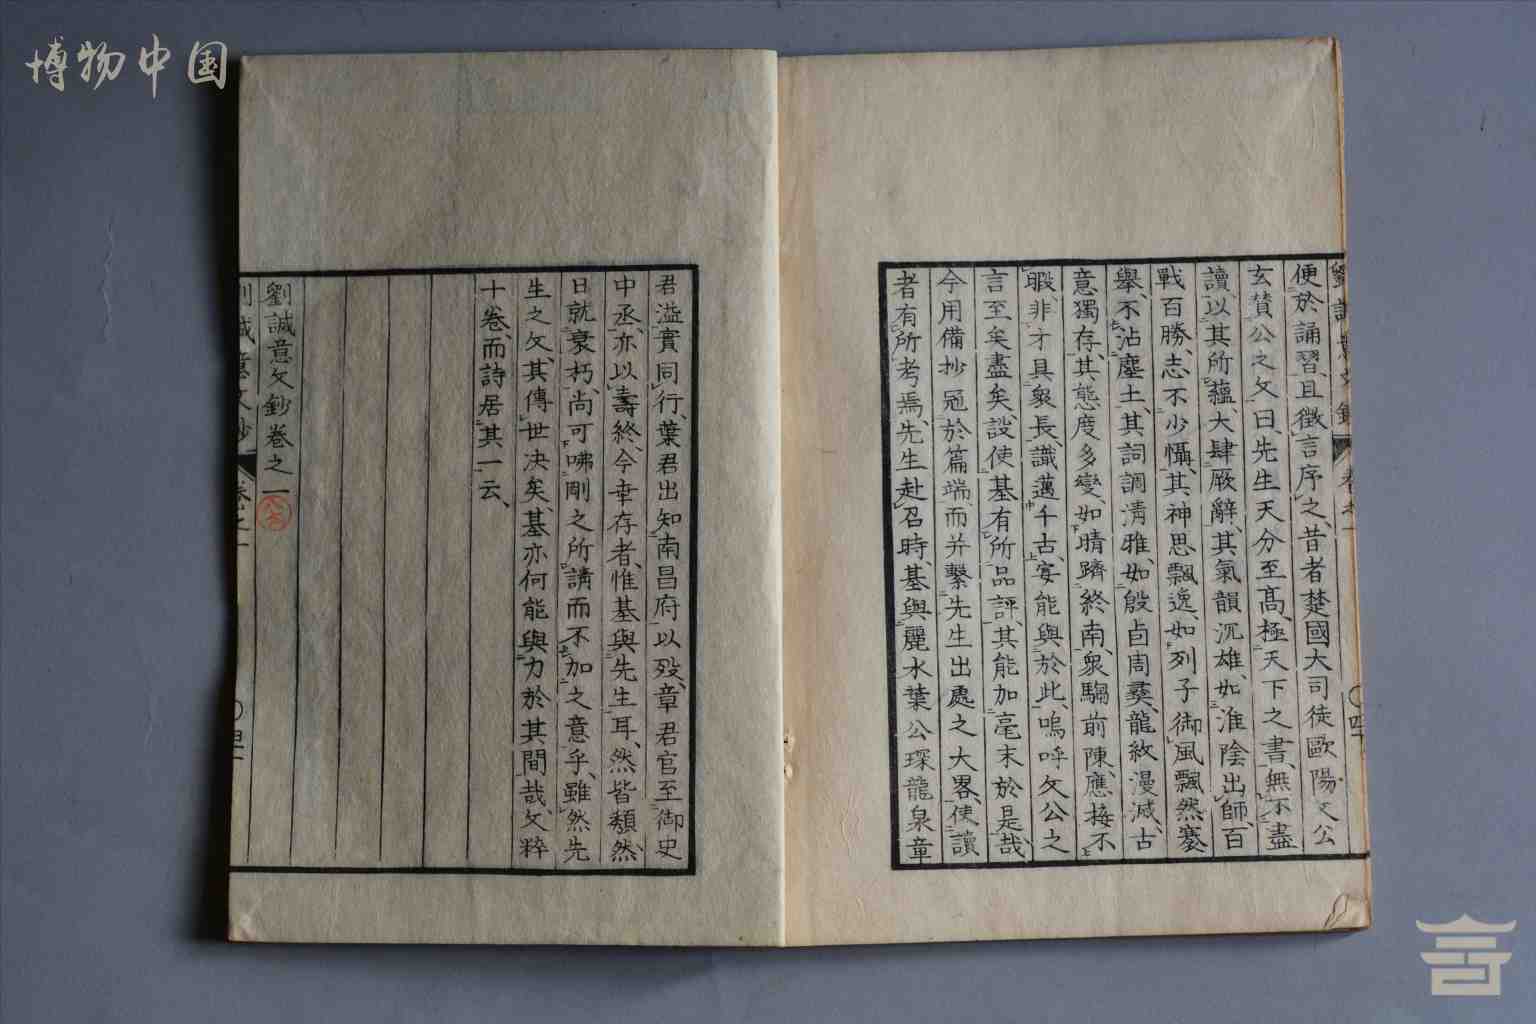 博物中国
便於誦習、且徵言序之、昔者楚國大司徒歐陽文公
玄賛公之文曰、先生天分至髙、極天下之書、無不盡
讀、以其所蘊、大肆厥辭、其氣韻沉雄、如淮陰出師、百
戰百勝、志不少懾、其神思飄逸、如列子御風飄然蹇
舉、不沾塵土、其詞調清雅、如殷卣周彝、龍紋漫滅、古
意獨存、其態度多變、如晴躋終南、衆騶前陳、應接不
暇、非才具衆長、識邁千古、安能與於此、嗚呼文公之
言至矣盡矣、設使基有所品評、其能加毫末於是哉、
今用備抄冠於篇端、而并繫先生出處之大畧、使讀
者有所考焉、先生赴召時、基與麗水葉公琛龍泉章
君溢實同行、葉君出知南昌府以歿、章君官至御史
中丞、亦以壽終、今幸存者、惟基與先生耳、然皆頹然
日就衰朽、尚可咈剛之所請而不加之意乎、雖然先
生之文、其傳世决矣、基亦何能與力於其間哉、文粹
十卷、而詩居其一云、
劉誠意文鈔卷之一